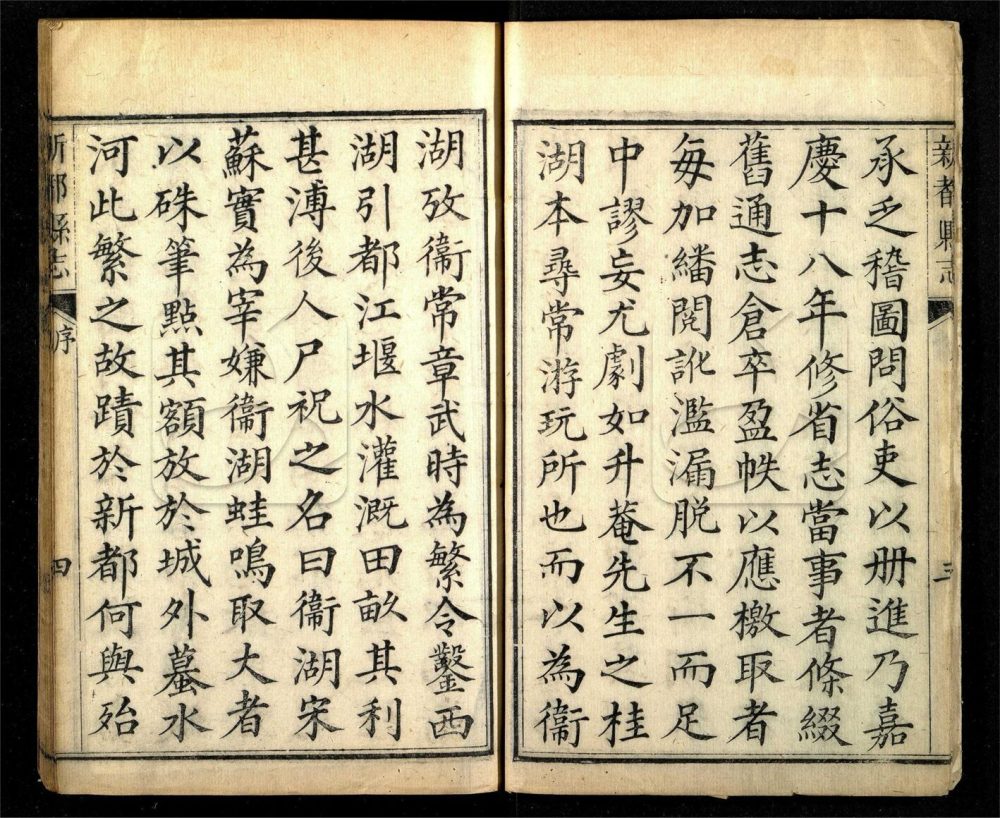 新都縣志
三
承乏稽圖問俗吏以册進乃嘉
慶十八年修省志當事者條綴
舊通志倉卒盈帙以應檄取者
每加繙閱訛濫漏脱不一而足
中謬妄尤劇如升菴先生之桂
湖本尋常游玩所也而以為衞
湖攷衞常章武時為繁令鑿西
湖引都江堰水灌溉田畝其利
甚溥後人尸祝之名曰衞湖宋
蘇實為宰嫌衞湖蛙鳴取大者
以硃筆點其額放於城外蟇水
河此繁之故蹟於新都何與殆
新都縣志
序
四